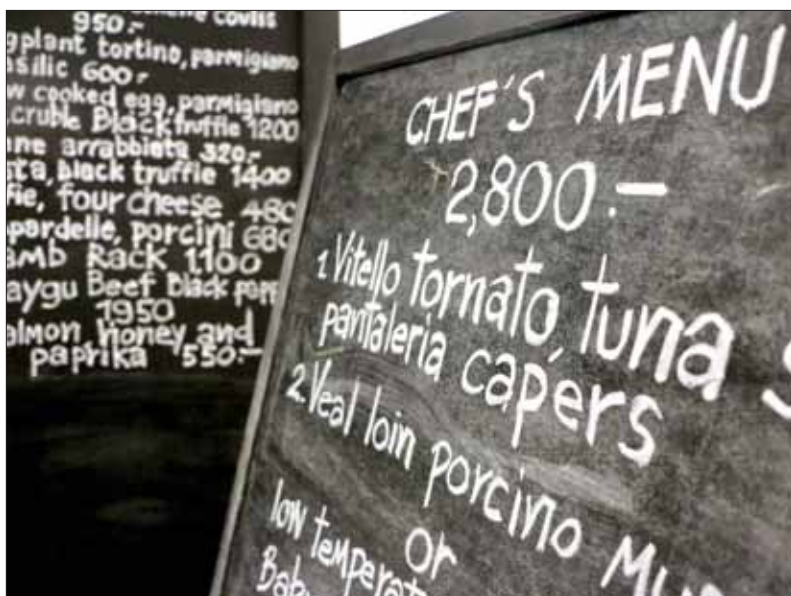 coviss
950.-
ggplant tortino, parmigiano
asilic 600.-
w cooked egg, parmigiano
cruble Black truffle 1200
nne arrabbiata 320.-
sta, black truffle 1400
fie, four cheese 480
pardelle, porcini 680
amb Rack 1100
aygu Beef Black pepp
1950
almon, Honey and
paprika 550.-
CHEF'S MENU
2,800.-
1. Vitello tornato, tuna s
pantaleria capers
2. Veal loin porcino Mu
or
low temperat
Bab